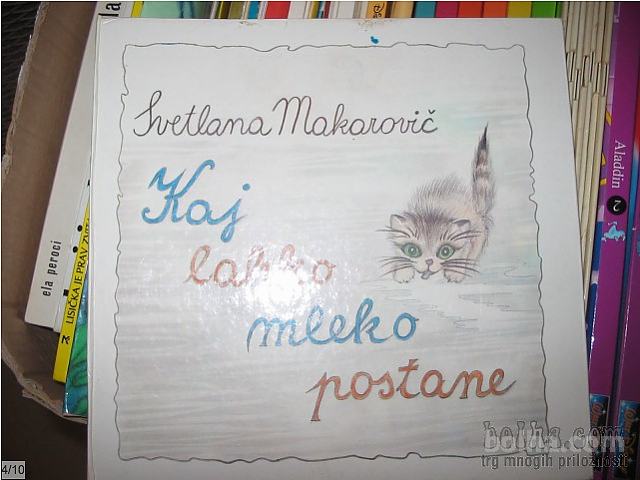 Svetlana Makarovič
Kaj
lahko
mleko
postane
ela peroci
LISIČKA JE PRAV ZVITA
la
Aladdin 2
bolha.com
trg mnogih priložnosti
4/10